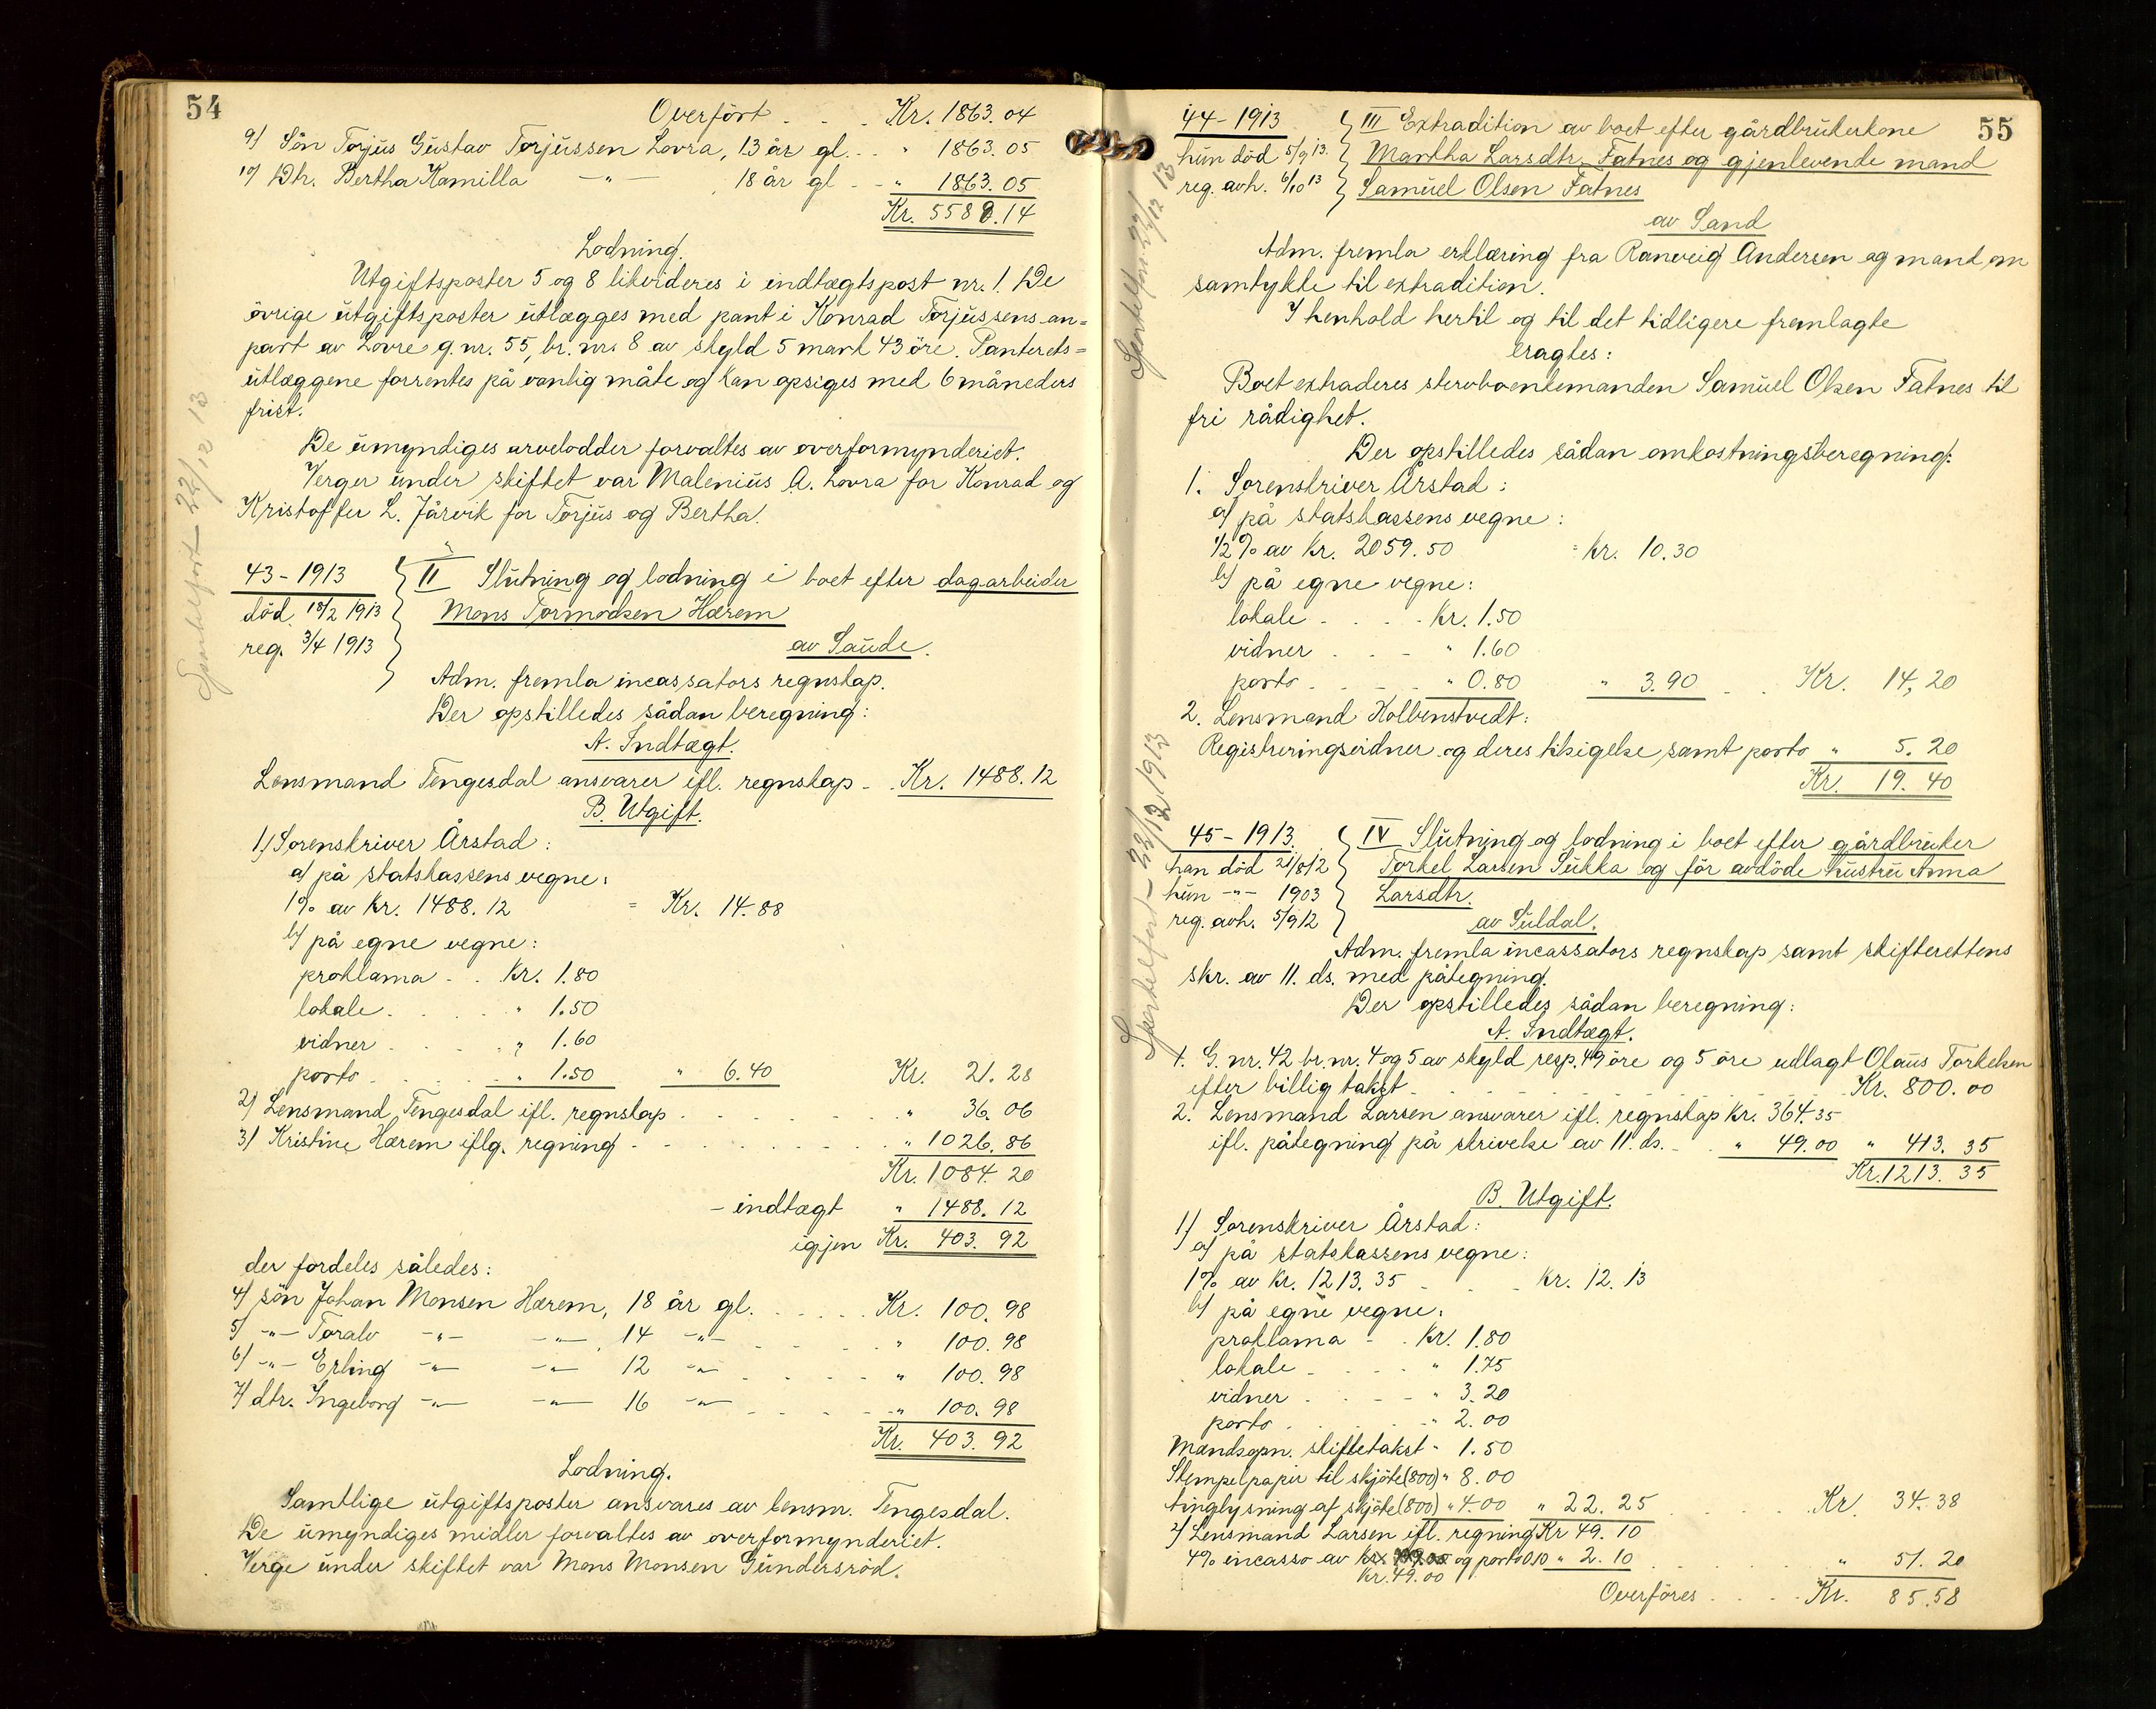 54
Overført . . . Kr. 1863.04
9/ Sön Torjus Gustav Torjussen Lovra, 13 år gl. . . " 1863.05
10/ Dtr. Bertha Kamilla -"- 18 år gl . . " 1863.05
Kr. 5589.14
Lodning.
Utgiftsposter 5 og 8 likvideres i indtægtspost nr. 1. De
övrige utgiftsposter utlægges med pant i Konrad Torjussens an=
part av Lovre g.nr. 55, br. nr. 8 av skyld 5 mark 43 öre. Panterets=
utlæggene forrentes på vanlig måte og kan opsiges med 6 måneders
frist.
De umyndiges arvelodder forvaltes av overformynderiet.
Verger under skiftet var Malenius A. Lovra for Konrad og
Kristoffer L. Jårvik for Torjus og Bertha.
Sportelført 22/12 13
43 - 1913
död 18/2 1913
reg. 3/4 1913
II Slutning og lodning i boet efter dagarbeider
Mons Tormodsen Hærem
av Saude.
Adm. fremla incassators regnskap.
Der opstilledes sådan beregning:
A. Indtægt.
Lensmand Tengesdal ansvarer ifl. regnskap . . Kr. 1488.12
B. Utgift.
1/ Sorenskriver Årstad:
a/ på statskassens vegne:
1% av kr. 1488.12 = Kr. 14.88
b/ på egne vegne:
proklama . . Kr. 1.80
lokale . . . . " 1.50
vidner . . . . " 1.60
porto . . . . " 1.50 " 6.40 Kr. 21.28
2/ Lensmand Tengesdal ifl. regnskap . . . . . . " 36.06
3/ Kristine Hærem iflg. regning . . . . . . . " 1026.86
Kr. 1084.20
- indtægt " 1488.12
igjen Kr. 403.92
der fordeles således:
4/ sön Johan Monsen Hærem, 18 år gl. . . . . Kr. 100.98
5/ -"- Toralv -"- -"- 14 -"- . . . . " 100.98
6/ -"- Erling -"- -"- 12 -"- . . . . " 100.98
7/ dtr. Ingeborg -"- -"- 16 -"- . . . . " 100.98
Kr. 403.92
Lodning.
Samtlige utgiftsposter ansvares av lensm. Tengesdal.
De umyndiges midler forvaltes av overformynderiet.
Verge under skiftet var Mons Monsen Gundersröd.
55
44 - 1913
hun död 5/9 13.
reg. avh. 6/10 13
III Extradition av boet efter gårdbrukerkone
Martha Larsdtr. Fatnes og gjenlevende mand
Samuel Olsen Fatnes
av Sand
Sportelført 22/12 13
Adm. fremla erklæring fra Ranveig Andersen og mand om
samtykke til extradition.
I henhold hertil og til det tidligere fremlagte
eragtes:
Boet extraderes stervboenkemanden Samuel Olsen Fatnes til
fri rådighet.
Der opstilledes sådan omkostningsberegning:
1. Sorenskriver Årstad:
a/ på statskassens vegne:
1/2% av Kr. 2059.50 = Kr. 10.30
b/ på egne vegne:
lokale . . . . Kr. 1.50
vidner . . . " 1.60
porto . . . . " 0.80 " 3.90 . . Kr. 14,20
2. Lensmand Kolbenstvedt:
Registreringsvidner og deres tilsigelse samt porto " 5.20
Kr. 19.40
Sportelført 22/12 1913
45 - 1913.
han död 21/8 12
hun -"- 1903
reg. avh. 5/9 12
IV Slutning og lodning i boet efter gårdbruker
Torkel Larsen Sukka og för avdöde hustru Anna
Larsdtr.
av Suldal.
Adm. fremla incassators regnskap samt skifterettens
skr. av 11. ds. med påtegning.
Der opstilledes sådan beregning:
A. Indtægt.
1. G. nr. 42 br. nr. 4 og 5 av skyld resp. 49 öre og 5 öre udlagt Olaus Torkelsen
efter billig takst . . . . . . . Kr. 800.00
2. Lensmand Larsen ansvarer ifl. regnskap Kr. 364.35
ifl. påtegning på skrivelse av 11. ds. . . " 49.00 " 413.35
Kr. 1213.35
B. Utgift.
1/ Sorenskriver Årstad:
a/ på statskassens vegne:
1% av Kr. 1213.35 . . . Kr. 12.13
b/ på egne vegne:
proklama . . Kr. 1.80
lokale . . . . " 1.75
vidner . . . . " 3.20
porto . . . . " 2.00
Mandsopn. skiftetakst " 1.50
Stempelpapir til skjöte (800) " 8.00
tinglysning af skjöte (800) " 4.00 " 22.25 . . . . Kr. 34.38
2/ Lensmand Larsen ifl. regning Kr 49.10
4% incasso av og porto 0.10 " 2.10 . . . . " 51.20
Kr. 49.00
Overföres . . . . Kr. 85.58